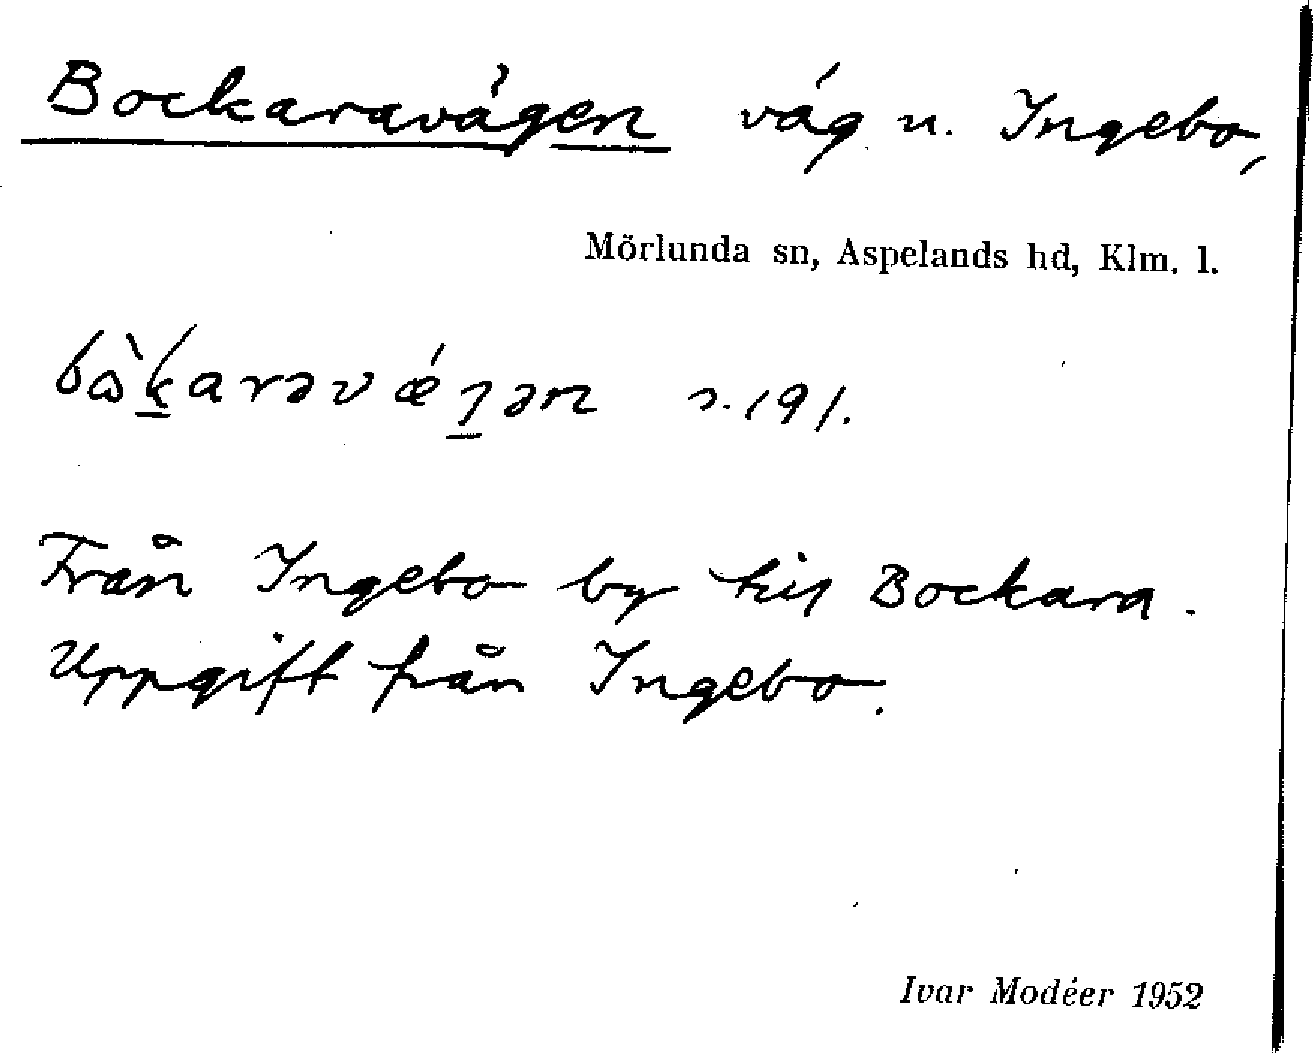 Bockaravägen väg u. Ingebo,
Mörlunda sn, Aspelands hd, Klm. l.
bɷ̀k̲arəvǽɲ̲ən s. 191.
Från Ingebo by till Bockara.
Uppgift från Ingebo.
Ivar Modéer 1952